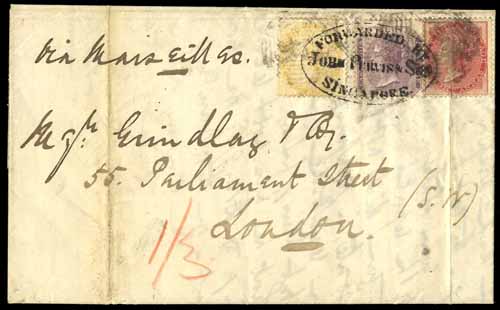 FORWARDED BY
JOHN PURVIS & SON
SINGAPORE
via Marseilles.
Grindlay & Co.
55. Parliament Street
London. (S.W)
1/3